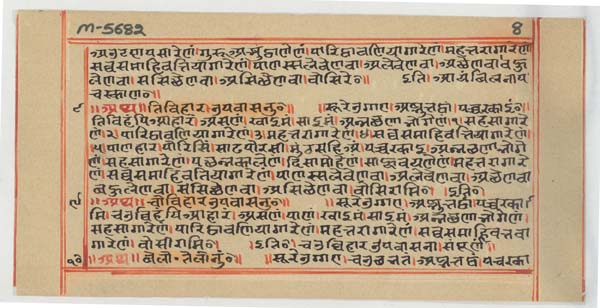 M-5682 ४
पारिट्ठावणियागारेणं महत्तरागारेणं
सव्वसमाहिवत्तियागारेणं पाणस्सलेवेणवा अलेवेणवा
लेणवा ससिछेणवा असिछेणवा वोसिरे॰ इति आयंबिलनाप
चस्काण॰
॥अथ॥ तिविहार उपवासनु॰ ॥सूरेउग्गए अभत्तट्ठं पच्चरकाई॰
तिविहंपि आहारं असणं खाइमं साइमं अन्नत्थणाभोगेणं सहसागारे
णं पारिट्ठावणियागारेणं महत्तरागारेणं सव्वसमाहिवत्तियागारेणं
पाणहार पोरिसिं साढपोरसी मुठसहिअं पच्चरकाइ अन्नत्थणाभोगे
णं सहसागारेणं पछन्नकालेणं दिसामोहेणं साहुवयणेणं महत्तरागारे
णं सव्वसमाहिवत्तियागारेणं पाणस्सलेवेणवा अलेवेणवा अछेणवा
बहुलेणवा ससिछेणवा असिछेणवा वोसिरामि॰ इति॰
॥अथ॥ चोविहार उपवासनु॰ ॥सूरेउग्गए अभत्तट्ठं पच्चरका
मि चउविहंपि आहारं असणं पाणं खाइमं साइमं अन्नत्थणाभोगेणं
सहसागारेणं पारिट्ठावणियागारेणं महत्तरागारेणं सव्वसमाहिवत्तया
गारेणं वोसीरामि॰ इति॰ चउविहार उपवासना संपूर्ण॥
१० ॥अथ॥ ॥सूरेउग्गए चउछभत्त अभत्तट्ठं पच्चरका